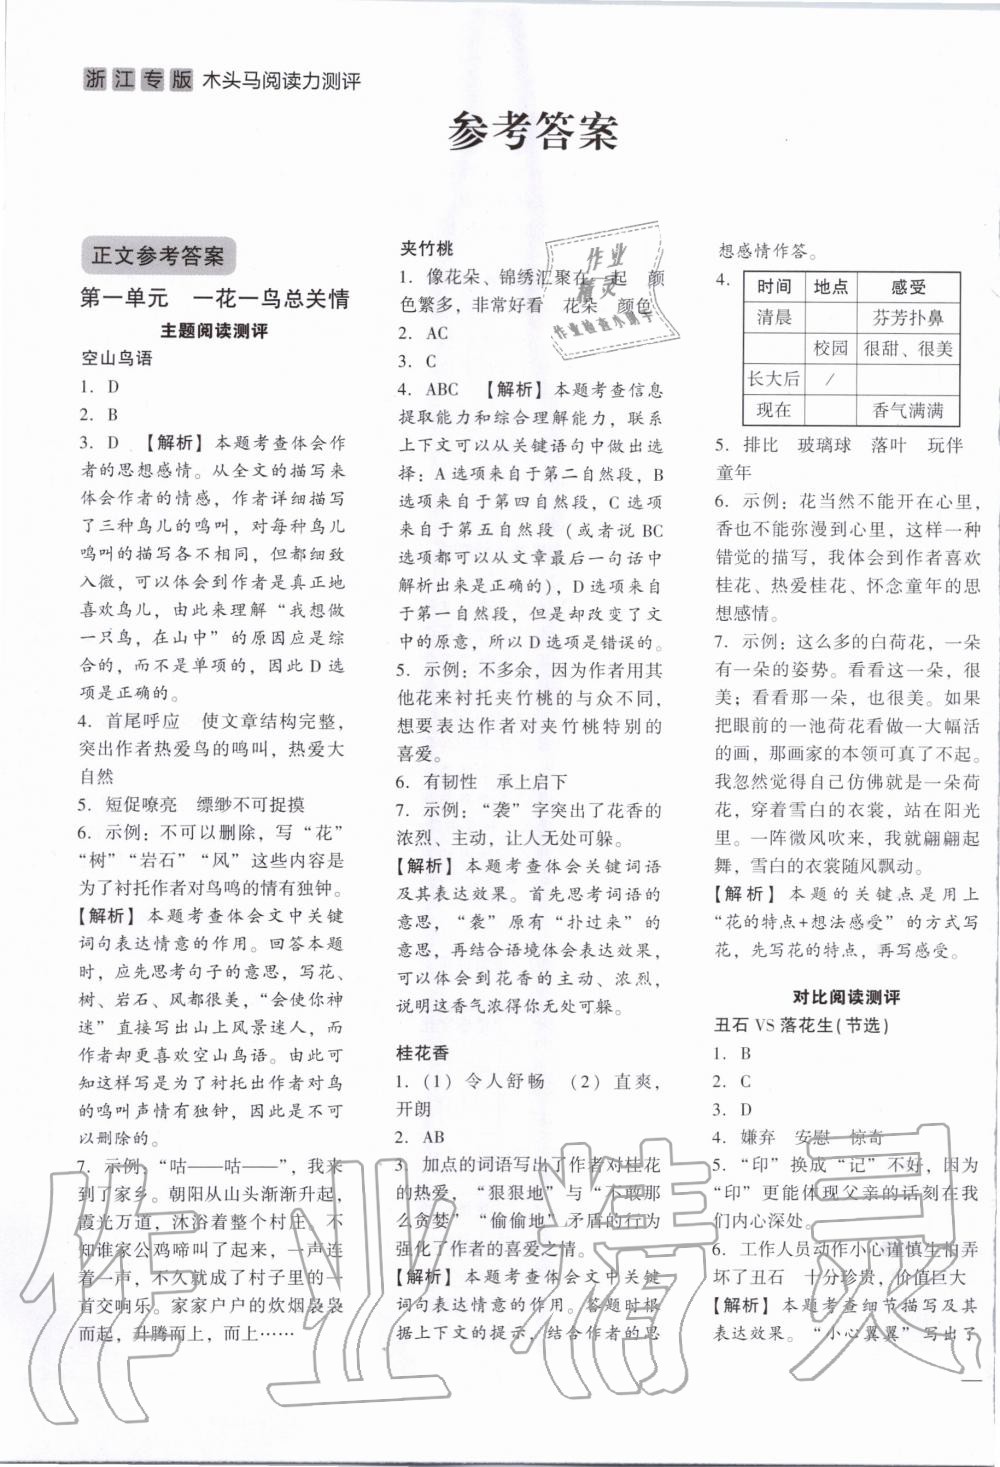 浙江专版 木头马阅读力测评
参考答案
正文参考答案
第一单元 一花一鸟总关情
主题阅读测评
空山鸟语
1. D
2. B
3. D 【解析】本题考查体会作
者的思想感情。从全文的描写来
体会作者的情感，作者详细描写
了三种鸟儿的鸣叫，对每种鸟儿
鸣叫的描写各不相同，但都细致
入微，可以体会到作者是真正地
喜欢鸟儿，由此来理解“我想做
一只鸟，在山中”的原因应是综
合的，而不是单项的，因此 D 选
项是正确的。
4. 首尾呼应 使文章结构完整，
突出作者热爱鸟的鸣叫，热爱大
自然
5. 短促嘹亮 缥缈不可捉摸
6. 示例：不可以删除，写“花”
“树”“岩石”“风”这些内容是
为了衬托作者对鸟鸣的情有独钟。
【解析】本题考查体会文中关键
词句表达情意的作用。回答本题
时，应先思考句子的意思，写花、
树、岩石、风都很美，“会使你神
迷”直接写出山上风景迷人，而
作者却更喜欢空山鸟语。由此可
知这样写是为了衬托出作者对鸟
的鸣叫声情有独钟，因此是不可
以删除的。
7. 示例：“咕——咕——”，我来
到了家乡。朝阳从山头渐渐升起，
霞光万道，沐浴着整个村庄 不
知谁家公鸡啼叫了起来，一声接
着一声，不久就成了村子里的一
首交响乐。家家户户的炊烟袅袅
而起，升腾而上，而上……
夹竹桃
1. 像花朵、锦绣汇聚在一起 颜
色繁多，非常好看 花朵 颜色
2. AC
3. C
4. ABC 【解析】本题考查信息
提取能力和综合理解能力，联系
上下文可以从关键语句中做出选
择：A 选项来自于第二自然段，B
选项来自于第四自然段，C 选项
来自于第五自然段（或者说 BC
选项都可以从文章最后一句话中
解析出来是正确的），D 选项来自
于第一自然段，但是却改变了文
中的原意，所以 D 选项是错误的。
5. 示例：不多余，因为作者用其
他花来衬托夹竹桃的与众不同，
想要表达作者对夹竹桃特别的
喜爱。
6. 有韧性 承上启下
7. 示例：“袭”字突出了花香的
浓烈、主动，让人无处可躲。
【解析】本题考查体会关键词语
及其表达效果。首先思考词语的
意思，“袭”原有“扑过来”的
意思，再结合语境体会表达效果，
可以体会到花香的主动、浓烈，
说明这香气浓得你无处可躲。
桂花香
1.（1）令人舒畅 （2）直爽，
开朗
2. AB
3. 加点的词语写出了作者对桂花
的热爱，“狠狠地”与“不敢那
么贪婪”“偷偷地”矛盾的行为
强化了作者的喜爱之情。
【解析】本题考查体会文中关键
词句表达情意的作用。答题时根
据上下文的提示，结合作者的思
想感情作答。
4.
时间 地点 感受
清晨 芬芳扑鼻
校园 很甜、很美
长大后 /
现在 香气满满
5. 排比 玻璃球 落叶 玩伴
童年
6. 示例：花当然不能开在心里，
香也不能弥漫到心里，这样一种
错觉的描写，我体会到作者喜欢
桂花、热爱桂花、怀念童年的思
想感情。
7. 示例：这么多的白荷花，一朵
有一朵的姿势。看看这一朵，很
美；看看那一朵，也很美。如果
把眼前的一池荷花看做一大幅活
的画，那画家的本领可真了不起。
我忽然觉得自己仿佛就是一朵荷
花，穿着雪白的衣裳，站在阳光
里。一阵微风吹来，我就翩翩起
舞，雪白的衣裳随风飘动。
【解析】本题的关键点是用上
“花的特点+想法感受”的方式写
花，先写花的特点，再写感受。
对比阅读测评
丑石 VS 落花生（节选）
1. B
2. C
3. D
4. 嫌弃 安慰 惊奇
5. “印”换成“记”不好，因为
“印”更能体现父亲的话刻在我
们内心深处。
6. 工作人员动作小心谨慎生怕弄
坏了丑石 十分珍贵，价值巨大
【解析】本题考查细节描写及其
表达效果。“小心翼翼”写出了
作业
精灵
作业检查小助手
作业精灵